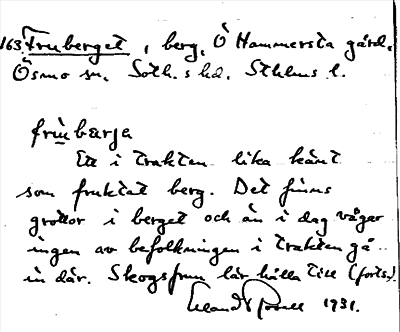 163. Fruberget, berg, Ö Hammersta gård,
Ösmo sn. Soth. s hd. Sthlms l.
frùbærja
Ett i trakten lika känt
som fruktat berg. Det finns
grottor i berget och än i dag vågar
ingen av befolkningen i trakten gå
in där. Skogsfrun lär hålla till (forts.).
1931.